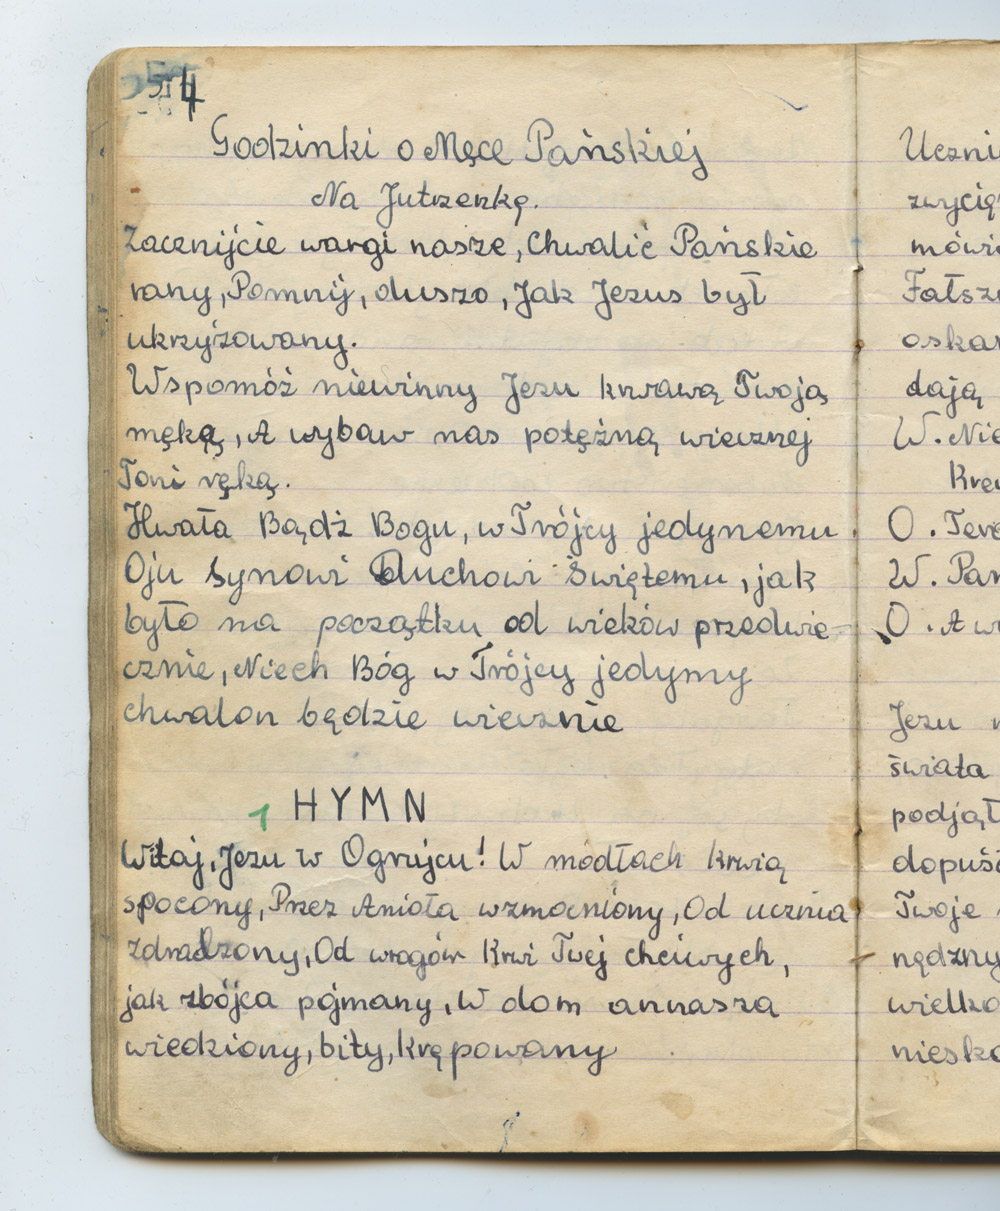 54
Godzinki o Męce Pańskiej
Na Jutrzenkę.
Zacznijcie wargi nasze, Chwalić Pańskie
rany, Pomnij, duszo, Jak Jezus był
ukrzyżowany.
Wspomóż niewinny Jezu krwawą Twoją
męką, A wybaw nas potężną wiecznej
Toni ręką.
Hwała Bądź Bogu, w Trójcy jedynemu.
Oju synowi Duchowi Świętemu, jak
było na początku od wieków przedwie-
cznie, Niech Bóg w Trójcy jedymy
chwalon będzie wiecznie
1 HYMN
Witaj, Jezu w Ogrujcu! W modłach krwią
spocony, Przez Anioła wzmocniony, Od ucznia
zdradzony, Od wrogów Krwi Twej chciwych,
jak zbójca pojmany, W dom annasza
wiedziony, bity, krępowany
Uczni
zwycię
mówi
Fałsz
oskar
dają
W. Nie
Krew
O. Ter
W. Pan
O. A w
Jezu
świata
podjął
dopuś
Twoje
nędzny
wielko
niesko